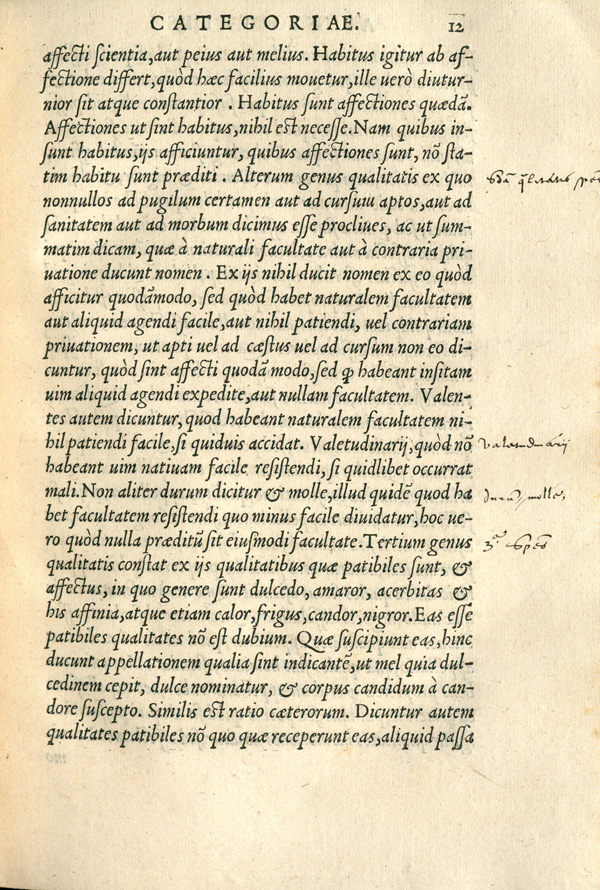 CATEGORIAE. 12
affecti scientia, aut peius aut melius. Habitus igitur ab af-
fectione differt, quòd hæc facilius mouetur, ille uerò diutur-
nior sit atque constantior . Habitus sunt affectiones quædã.
Affectiones ut sint habitus, nihil est necesse. Nam quibus in-
sunt habitus, ijs afficiuntur, quibus affectiones sunt, nõ sta-
tim habitu sunt præditi . Alterum genus qualitatis ex quo
nonnullos ad pugilum certamen aut ad cursum aptos, aut ad
sanitatem aut ad morbum dicimus esse procliues, ac ut sum-
matim dicam, quæ à naturali facultate aut à contraria pri-
uatione ducunt nomen . Ex ijs nihil ducit nomen ex eo quòd
afficitur quodãmodo, sed quòd habet naturalem facultatem
aut aliquid agendi facile, aut nihil patiendi, uel contrariam
priuationem, ut apti uel ad cæstus uel ad cursum non eo di-
cuntur, quòd sint affecti quodã modo, sed ꝙ habeant insitam
uim aliquid agendi expedite, aut nullam facultatem. Valen-
tes autem dicuntur, quod habeant naturalem facultatem ni-
hil patiendi facile, si quiduis accidat. Valetudinarij, quòd nõ
valetudinarij
habeant uim natiuam facile resistendi, si quidlibet occurrat
mali. Non aliter durum dicitur & molle, illud quidẽ quod ha
bet facultatem resistendi quo minus facile diuidatur, hoc ue-
ro quòd nulla præditũ sit eiusmodi facultate. Tertium genus
qualitatis constat ex ijs qualitatibus quæ patibiles sunt, &
affectus, in quo genere sunt dulcedo, amaror, acerbitas &
his affinia, atque etiam calor, frigus, candor, nigror. Eas esse
patibiles qualitates nõ est dubium. Quæ suscipiunt eas, hinc
ducunt appellationem qualia sint indicantẽ, ut mel quia dul-
cedinem cepit, dulce nominatur, & corpus candidum à can-
dore suscepto. Similis est ratio cæterorum. Dicuntur autem
qualitates patibiles nõ quo quæ receperunt eas, aliquid passa